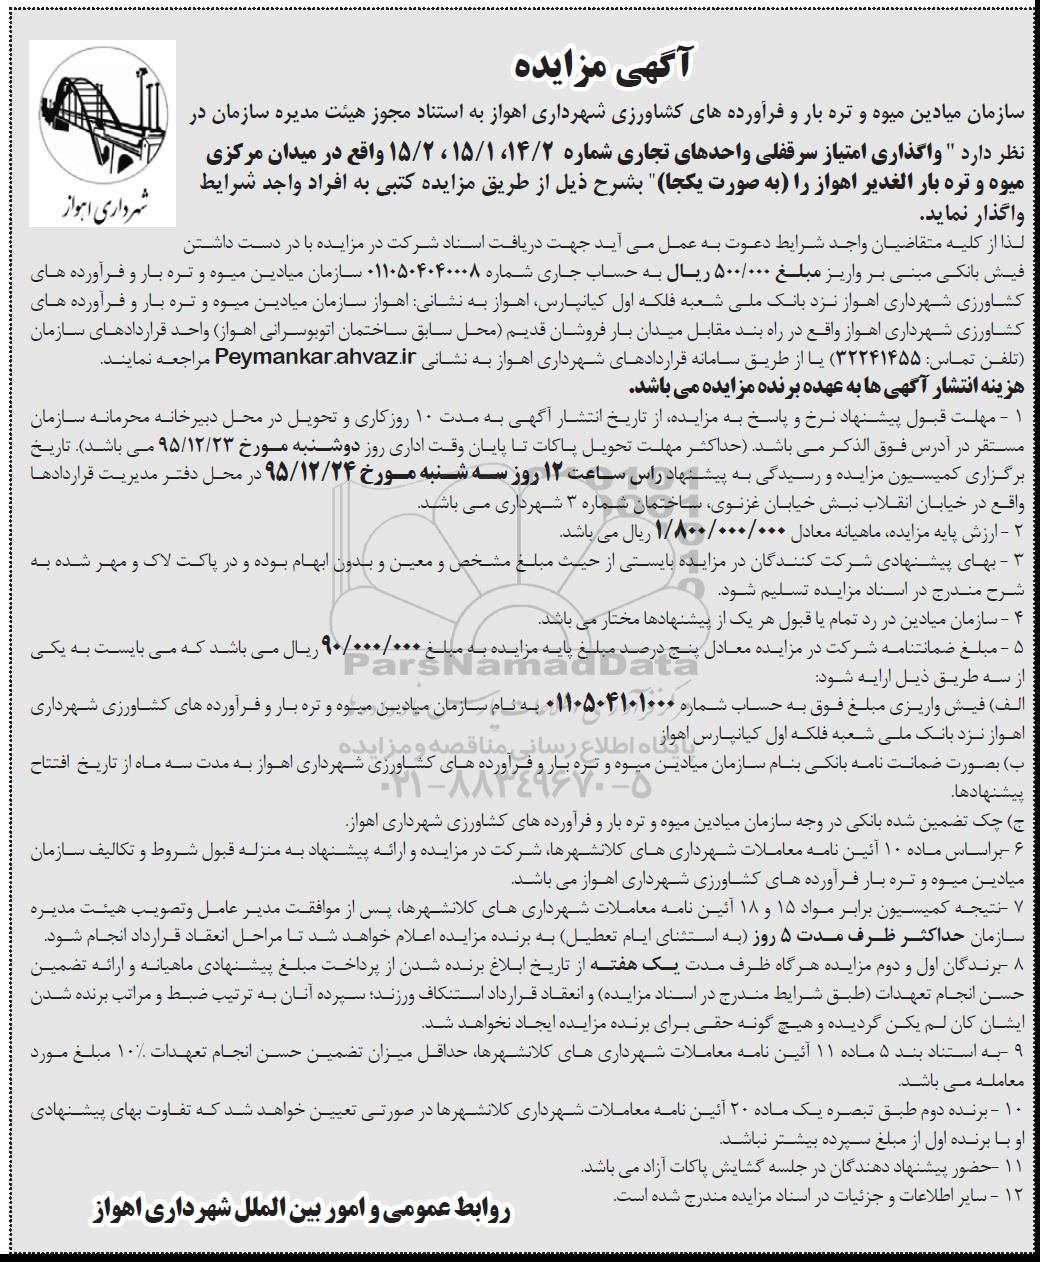 آگهی مزایده
شهرداری اهواز
سازمان میادین میوه و تره بار و فرآورده های کشاورزی شهرداری اهواز به استناد مجوز هیئت مدیره سازمان در
نظر دارد " واگذاری امتیاز سرقفلی واحدهای تجاری شماره ۱۴/۲، ۱۵/۱ ، ۱۵/۲ واقع در میدان مرکزی
میوه و تره بار الغدیر اهواز را (به صورت یکجا)" بشرح ذیل از طریق مزایده کتبی به افراد واجد شرایط
واگذار نماید.
لذا از کلیه متقاضیان واجد شرایط دعوت به عمل می آید جهت دریافت اسناد شرکت در مزایده با در دست داشتن
فیش بانکی مبنی بر واریز مبلغ ۵۰۰/۰۰۰ ریال به حساب جاری شماره ۰۱۱۰۵۰۴۰۴۰۰۰۸ سازمان میادین میوه و تره بار و فرآورده های
کشاورزی شهرداری اهواز نزد بانک ملی شعبه فلکه اول کیانپارس، اهواز به نشانی: اهواز سازمان میادین میوه و تره بار و فرآورده های
کشاورزی شهرداری اهواز واقع در راه بند مقابل میدان بار فروشان قدیم (محل سابق ساختمان اتوبوسرانی اهواز) واحد قراردادهای سازمان
(تلفن تماس: ۳۲۲۴۱۴۵۵) یا از طریق سامانه قراردادهای شهرداری اهواز به نشانی Peymankar.ahvaz.ir مراجعه نمایند.
هزینه انتشار آگهی ها به عهده برنده مزایده می باشد.
۱ - مهلت قبول پیشنهاد نرخ و پاسخ به مزایده، از تاریخ انتشار آگهی به مدت ۱۰ روزکاری و تحویل در محل دبیرخانه محرمانه سازمان
مستقر در آدرس فوق الذکر می باشد. (حداکثر مهلت تحویل پاکات تا پایان وقت اداری روز دوشنبه مورخ ۹۵/۱۲/۲۳ می باشد). تاریخ
برگزاری کمیسیون مزایده و رسیدگی به پیشنهاد راس ساعت ۱۲ روز سه شنبه مورخ ۹۵/۱۲/۲۴ در محل دفتر مدیریت قراردادها
واقع در خیابان انقلاب نبش خیابان غزنوی، ساختمان شماره ۳ شهرداری می باشد.
۲ - ارزش پایه مزایده، ماهیانه معادل ۱/۸۰۰/۰۰۰/۰۰۰ ریال می باشد.
۳ - بهای پیشنهادی شرکت کنندگان در مزایده بایستی از حیث مبلغ مشخص و معین و بدون ابهام بوده و در پاکت لاک و مهر شده به
شرح مندرج در اسناد مزایده تسلیم شود.
۴ - سازمان میادین در رد تمام یا قبول هر یک از پیشنهادها مختار می باشد.
۵ - مبلغ ضمانتنامه شرکت در مزایده معادل پنج درصد مبلغ پایه مزایده به مبلغ ۹۰/۰۰۰/۰۰۰ ریال می باشد که می بایست به یکی
ParsNamadData
از سه طریق ذیل ارایه شود:
الف) فیش واریزی مبلغ فوق به حساب شماره ۰۱۱۰۵۰۴۱۰۱۰۰۰ به نام سازمان میادین میوه و تره بار و فرآورده های کشاورزی شهرداری
اهواز نزد بانک ملی شعبه فلکه اول کیانپارس اهواز
پایگاه اطلاع رسانی مناقصه و مزایده
ب) بصورت ضمانت نامه بانکی بنام سازمان میادین میوه و تره بار و فرآورده های کشاورزی شهرداری اهواز به مدت سه ماه از تاریخ افتتاح
۰۲۱-۸۸۳۴۹۶۷۰-۵
پیشنهادها.
ج) چک تضمین شده بانکی در وجه سازمان میادین میوه و تره بار و فرآورده های کشاورزی شهرداری اهواز.
۶ -براساس ماده ۱۰ آئین نامه معاملات شهرداری های کلانشهرها، شرکت در مزایده و ارائه پیشنهاد به منزله قبول شروط و تکالیف سازمان
میادین میوه و تره بار فرآورده های کشاورزی شهرداری اهواز می باشد.
۷ -نتیجه کمیسیون برابر مواد ۱۵ و ۱۸ آئین نامه معاملات شهرداری های کلانشهرها، پس از موافقت مدیر عامل وتصویب هیئت مدیره
سازمان حداکثر ظرف مدت ۵ روز (به استثنای ایام تعطیل) به برنده مزایده اعلام خواهد شد تا مراحل انعقاد قرارداد انجام شود.
۸ -برندگان اول و دوم مزایده هرگاه ظرف مدت یک هفته از تاریخ ابلاغ برنده شدن از پرداخت مبلغ پیشنهادی ماهیانه و ارائه تضمین
حسن انجام تعهدات (طبق شرایط مندرج در اسناد مزایده) و انعقاد قرارداد استنکاف ورزند؛ سپرده آنان به ترتیب ضبط و مراتب برنده شدن
ایشان کان لم یکن گردیده و هیچ گونه حقی برای برنده مزایده ایجاد نخواهد شد.
۹ -به استناد بند ۵ ماده ۱۱ آئین نامه معاملات شهرداری های کلانشهرها، حداقل میزان تضمین حسن انجام تعهدات ۱۰% مبلغ مورد
معامله می باشد.
۱۰ - برنده دوم طبق تبصره یک ماده ۲۰ آئین نامه معاملات شهرداری کلانشهرها در صورتی تعیین خواهد شد که تفاوت بهای پیشنهادی
او با برنده اول از مبلغ سپرده بیشتر نباشد.
۱۱ -حضور پیشنهاد دهندگان در جلسه گشایش پاکات آزاد می باشد.
۱۲ - سایر اطلاعات و جزئیات در اسناد مزایده مندرج شده است.
روابط عمومی و امور بین الملل شهرداری اهواز